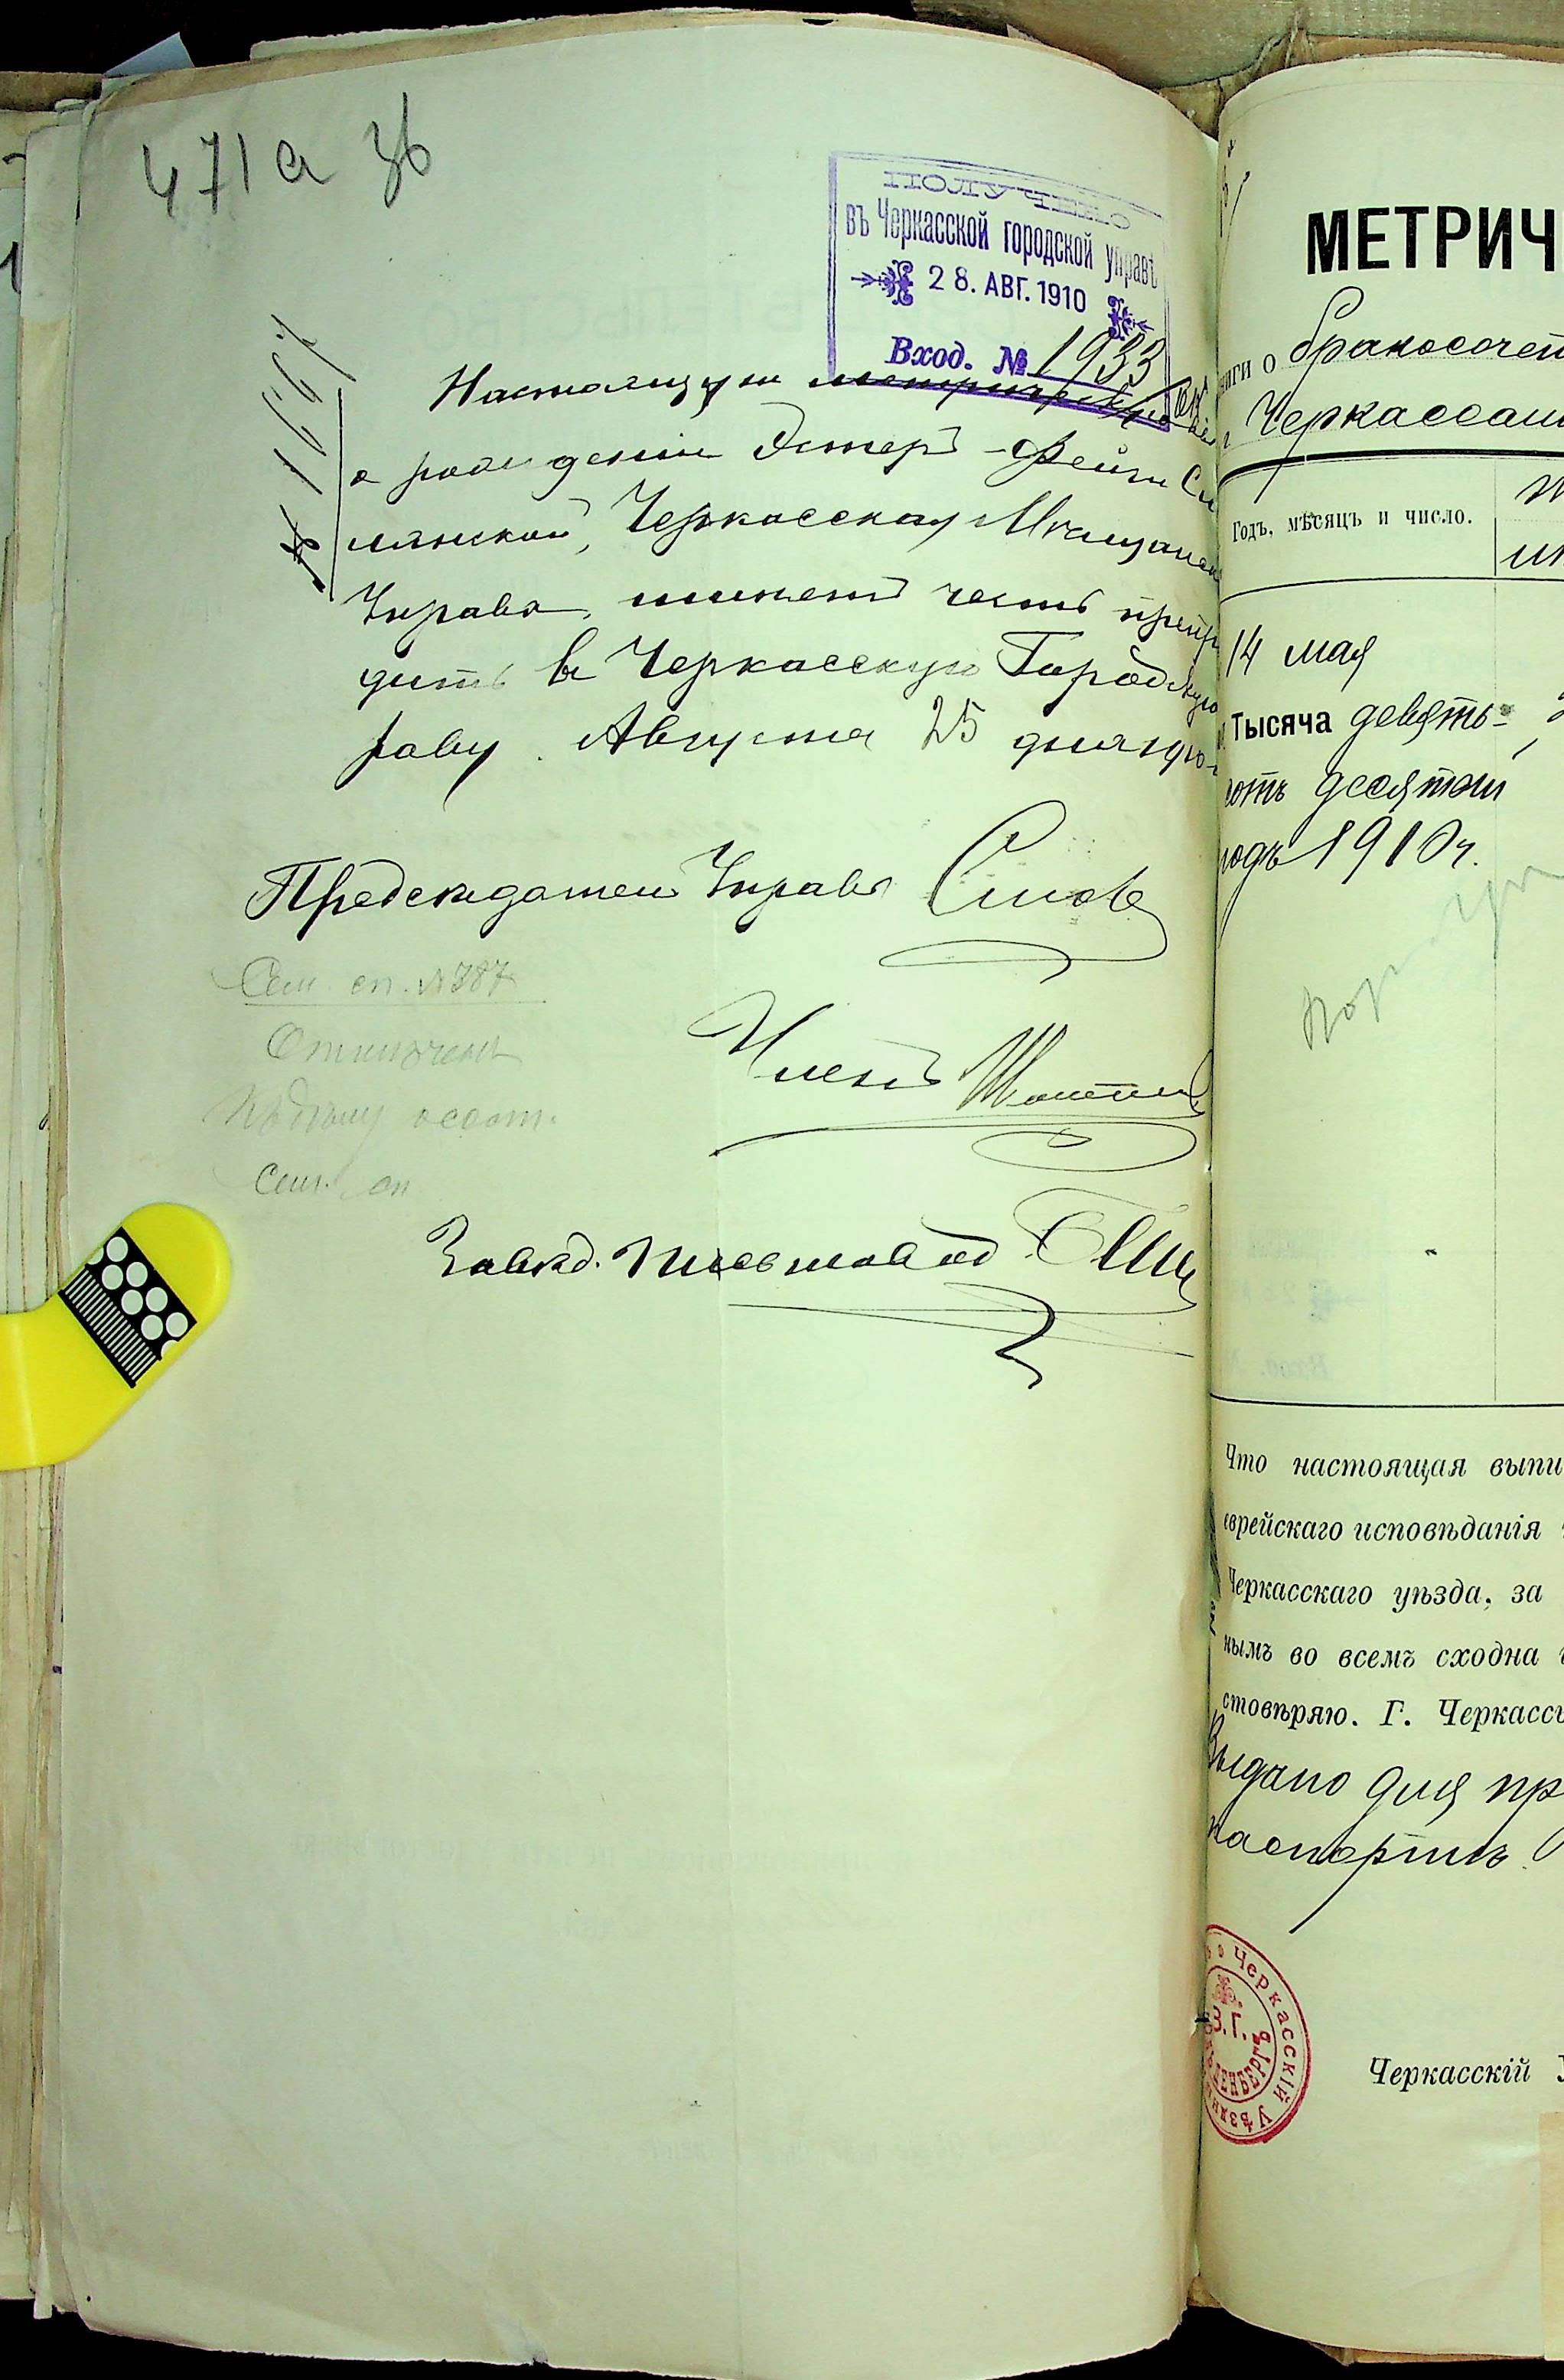 471а зв
ПОЛУЧЕНО
въ Черкасской городской управѣ
28. АВГ. 1910
Вход. № 1933
№ 1667
Настоящую метрическую
о рождении Эстеръ-Фейги См
лянской, Черкасская Мѣщанск
Управа, имѣетъ честь препр
дить въ Черкасскую Городскую
раву. Августа 25 дня 1910
Предсѣдатель Управы
Сем. сп. № 787
Отмѣчено
Членъ
Сем. сп
Завѣд. письмовод
МЕТРИЧ
ниги о бракосочет
Черкассаи
Годъ, мѣсяцъ и число.
14 мая
Тысяча девять-
сотъ десятый
годъ 1910 г.
Что настоящая выпи
еврейскаго исповѣданія
Черкасскаго уѣзда, за
нымъ во всемъ сходна
стовѣряю. Г. Черкассы
Выдано для пр
паспортнъ
Черкасскій Уѣздн
З.Г.
ЕНБЕРГЪ
Черкасскій